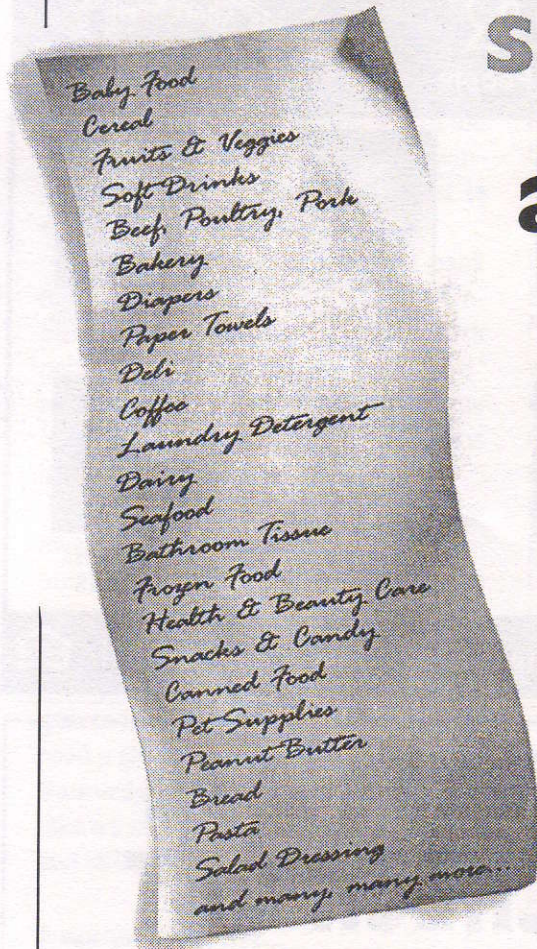 Baby Food
Cereal
Fruits & Veggies
Soft Drinks
Beef, Poultry, Pork
Bakery
Diapers
Paper Towels
Deli
Coffee
Laundry Detergent
Dairy
Seafood
Bathroom Tissue
Frozen Food
Health & Beauty Care
Snacks & Candy
Canned Food
Pet Supplies
Peanut Butter
Bread
Pasta
Salad Dressing
and many, many more...